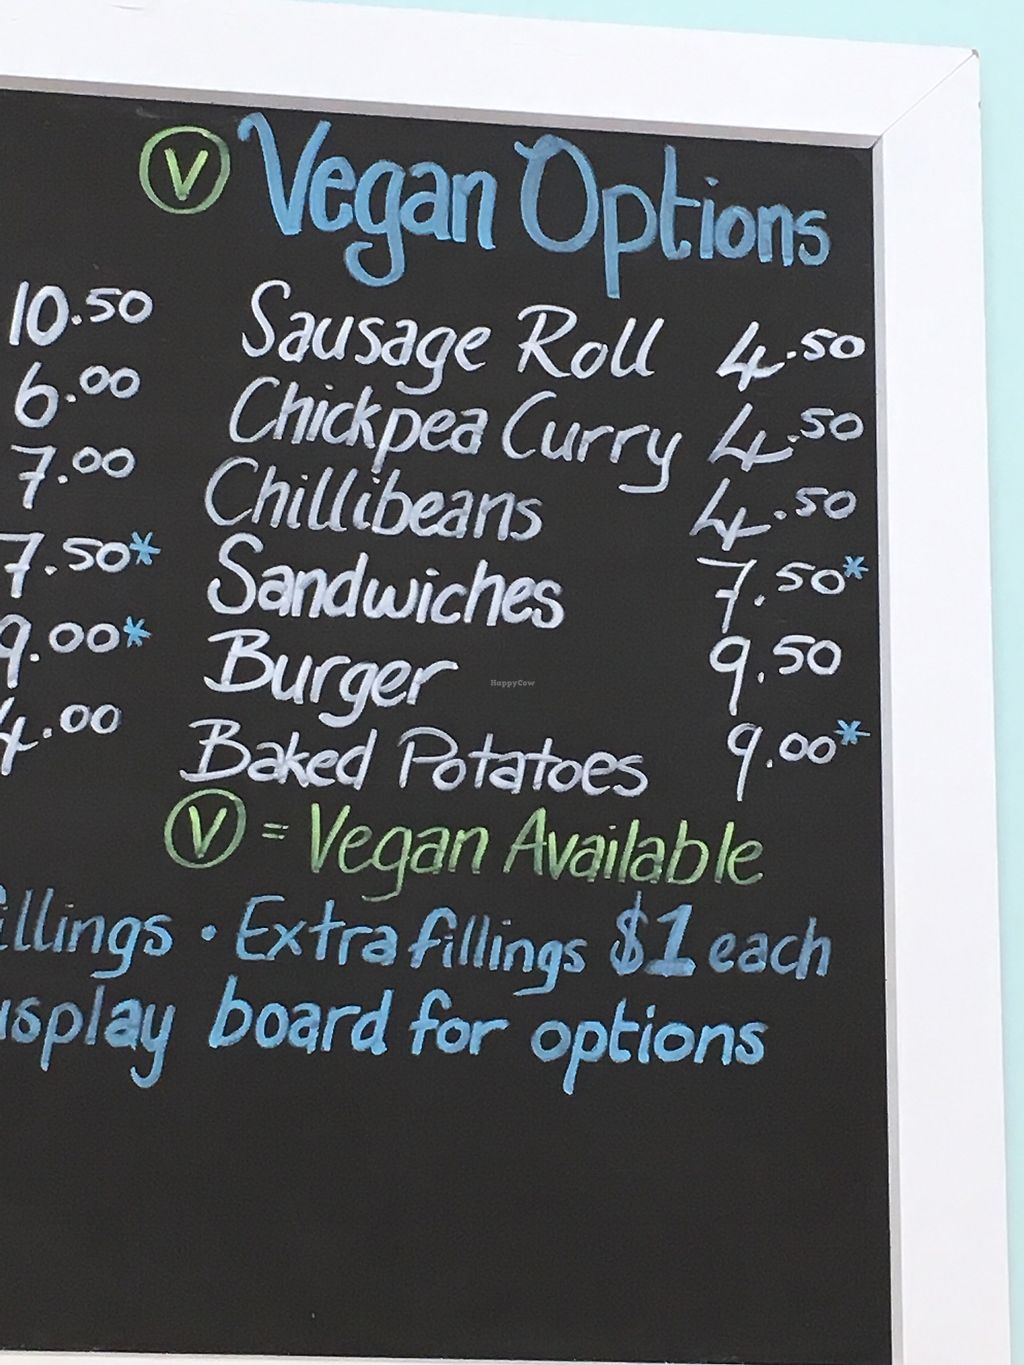 Ⓥ Vegan Options
10.50 Sausage Roll 4.50
6.00 Chickpea Curry 4.50
7.00 Chillibeans 4.50
7.50* Sandwiches 7.50*
9.00* Burger 9.50
4.00 Baked Potatoes 9.00*
Ⓥ = Vegan Available
illings • Extra fillings $1 each
isplay board for options
HappyCow